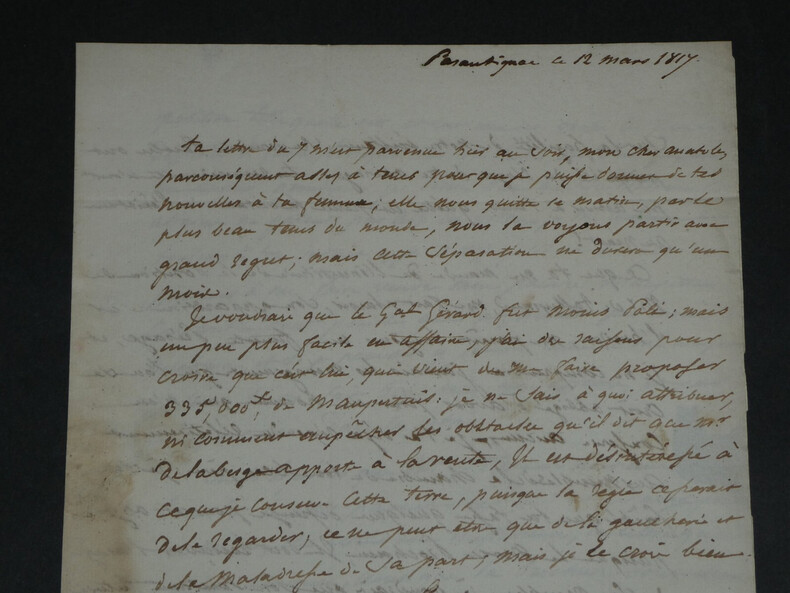 ce 12 mars 1817.
ta lettre du 7 m'est parvenue hier au soir, mon cher anatole,
parconséquent assés à tems pour que je puisse donner de tes
nouvelles à ta femme; elle nous quitte ce matin, par le
plus beau tems du monde, nous la voyons partir avec
grand regret; mais cette séparation ne durera qu'un
mois.
Je voudrais que le Gal Gérard fut moins poli; mais
un peu plus facile en affaire, j'ai des raisons pour
croire que c'est lui, qui vient de me faire proposer
335,000 de Maupertuis: je ne sais à quoi attribuer,
ni comment empêcher les obstacles qu'il dit que mr
de laberge apporte à la vente, Il est désintéressé à
ce que je conserve cette terre, puisque la régie
de le regarder, ce ne peut etre que de la gaucherie et
de la Maladresse de Sa part, mais je le crois bien